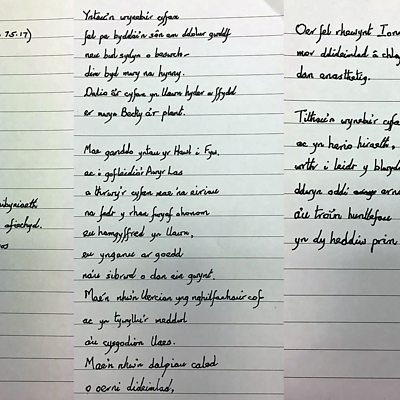 75.17)
wbyniaeth
afiechyd.
os
Yntau'n wynebu'r cyfan
fel pe byddai'n sôn am ddolur gwddf
neu bwl sydyn o beswch–
dim byd mwy na hynny.
Delio â'r cyfan yn llawn hyder a ffydd
er mwyn Becky a'r plant.
Mae ganddo yntau yr Hawl i Fyw,
ac i gofleidio'r Awyr Las
a thrwy'r cyfan mae 'na eiriau
na fedr y rhan fwyaf ohonom
eu hamgyffred yn llawn,
eu ynganu ar goedd
na'u sibrwd o dan ein gwynt.
Maen nhw'n llercian yng nghilfachau'r cof
ac yn tywyllu'r meddwl
a'u cysgodion llaes.
Maen nhw'n dalpiau caled
o oerni dideimlad,
Oer fel rhewynt Ion
mor ddideimlad â chlo
dan anasthetig.
Tithau'n wynebu'r cyfa
ac yn herio hiraeth,
wrth i leidr y blwydd
ddwyn oddi arna
a'u troi'n hunllefau
yn dy heddiw prin